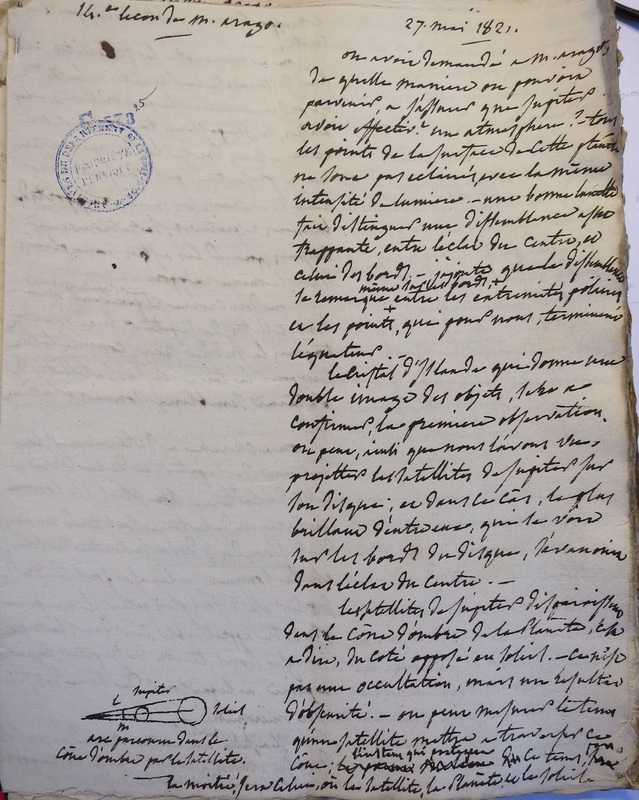 14.e leçon de m. arago.
27. mai 1821.
on avoit demandé a m. arago,
de quelle maniere on pouvoit
parvenir, a s'assurer que jupiter
avoit effectiv.t une atmosphere ? - tous
les points de la surface de cette planète
ne sont pas eclairés avec la même
intensité de lumiere. - une bonne lunette
fait distinguer une dissemblance assez
frappante, entre l'éclat du centre, et
celui des bords. - j'ajoute que la dissemblance
même sur les bords +
se remarque entre les extremités polaires
et les points, qui pour nous, terminent
l'équateur.
le cristal d'islande qui donne une
double image des objets, sert a
confirmer, la premiere observation.
on peut, ainsi que nous l'avons vu,
projetter les satellites de jupiter sur
son disque ; et dans ce cas, le plus
brillant d'entre eux, qui se voit
sur les bords du disque, s'évanouit
dans l'éclat du centre. -
les satellites de jupiter disparoissent
dans le cône d'ombre de la Planète, c'est
a dire, du coté opposé au soleil. - ce n'est
pas une occultation, mais un resultat
d'obscurité. - on peut mesurer le tems
qu'un satellite mettra a traverser ce
cône ; du ce tems,
la moitié, sera celui, où les satellite, la Planète, et le soleil
jupiter
soleil
m
arc parcouru dans le
cône d'ombre par le satellite.